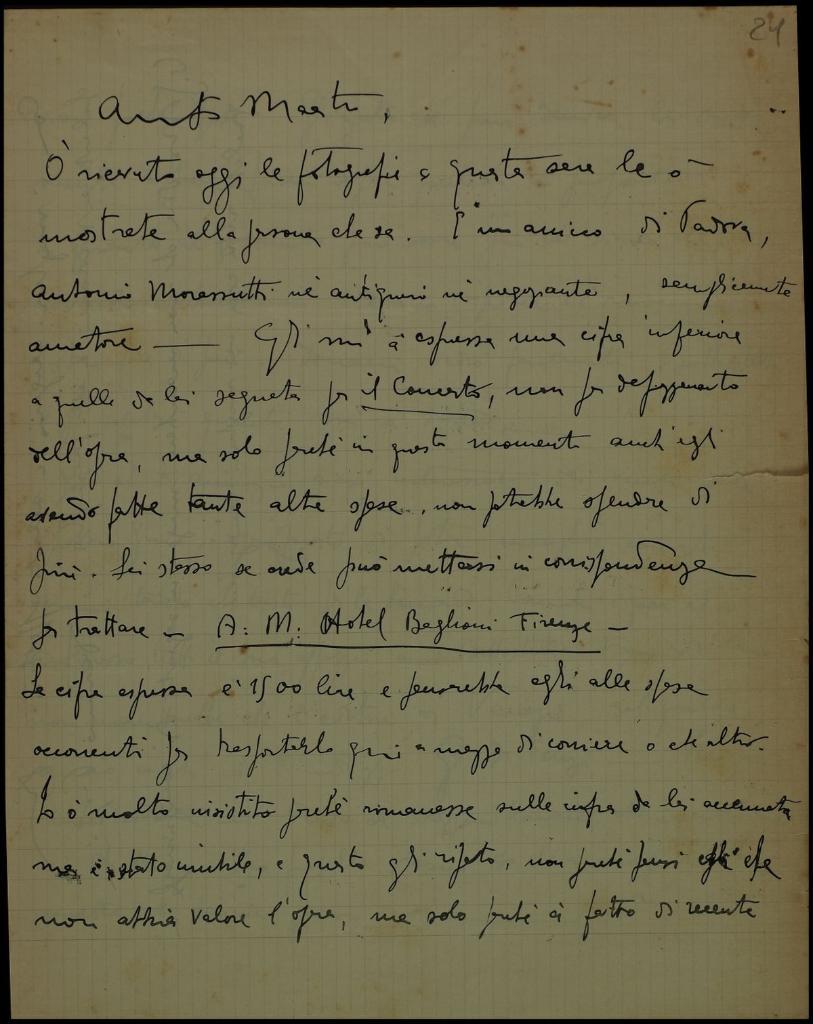 24
Maestro,
Ò ricevuto oggi le fotografie e questa sera le ò
mostrate alla persona che sa. È un amico di Padova,
Antonio Morassutti nè antiquario nè negoziante, semplicemente
amatore — Egli mi à espressa una cifra inferiore
a quella da lei segnata per il Concerto, non per deprezzamento
dell'opera, ma solo perchè in questo momento anch'egli
avendo fatte tante altre spese, non potrebbe spendere di
più. Lei stesso se crede può mettersi in corrispondenza
per trattare — A. M. Hotel Baglioni Firenze —
La cifra espressa è 1500 lire e penserebbe egli alle spese
occorrenti per trasportarlo qui a mezzo di corriere o che altro.
Io ò molto insistito perchè rimanesse sulla cifra da lei accennata
ma è stato inutile, e questo gli ripeto, non perchè pensi che
non abbia valore l'opera, ma solo perchè à fatto di recente